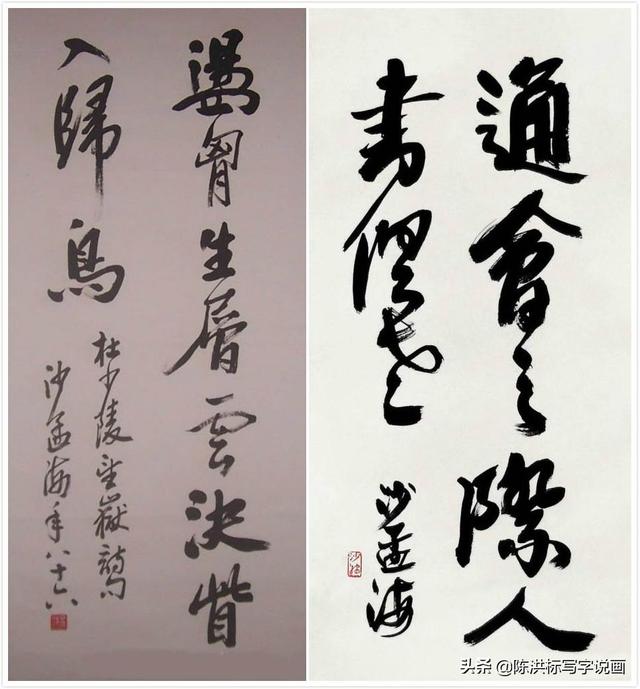 盪胷生層雲決眥
入歸鳥
杜少陵望嶽詩句
沙孟海年八十六
通會之際人
書俱老
沙孟海
头条 @陈洪标写字说画